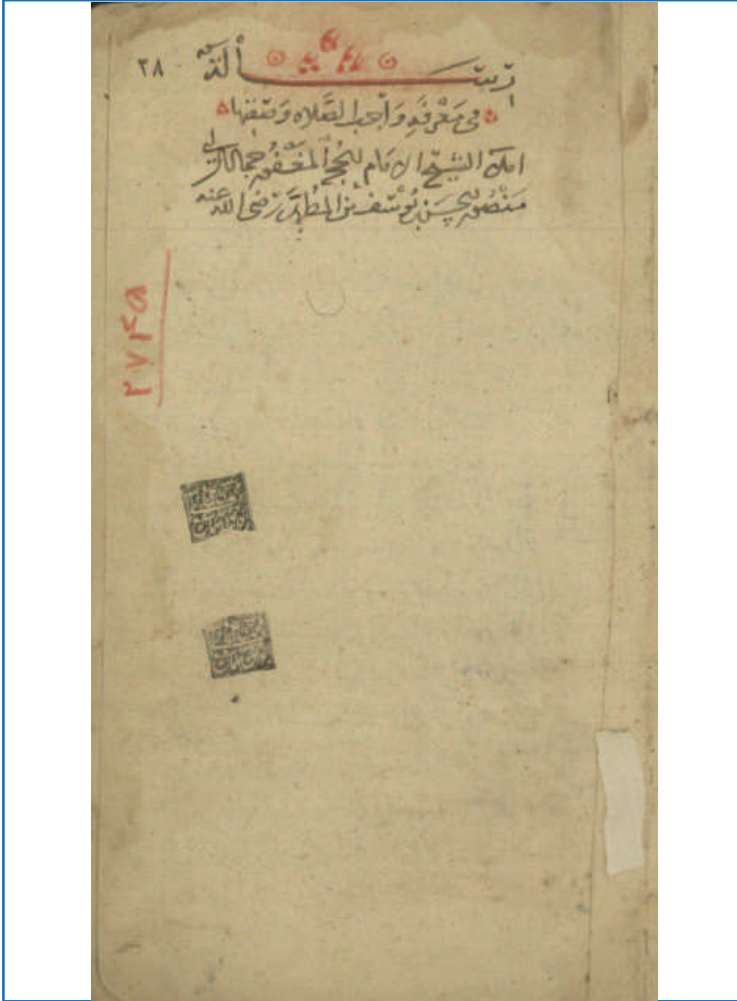 رسالة ٣٨
في معرفة واجب الصلاه وسننها
املاء الشيخ الامام المغفور جمال الدين
منصور الحسن بن يوسف بن المطهر رضي الله عنه
٢٧٤۵